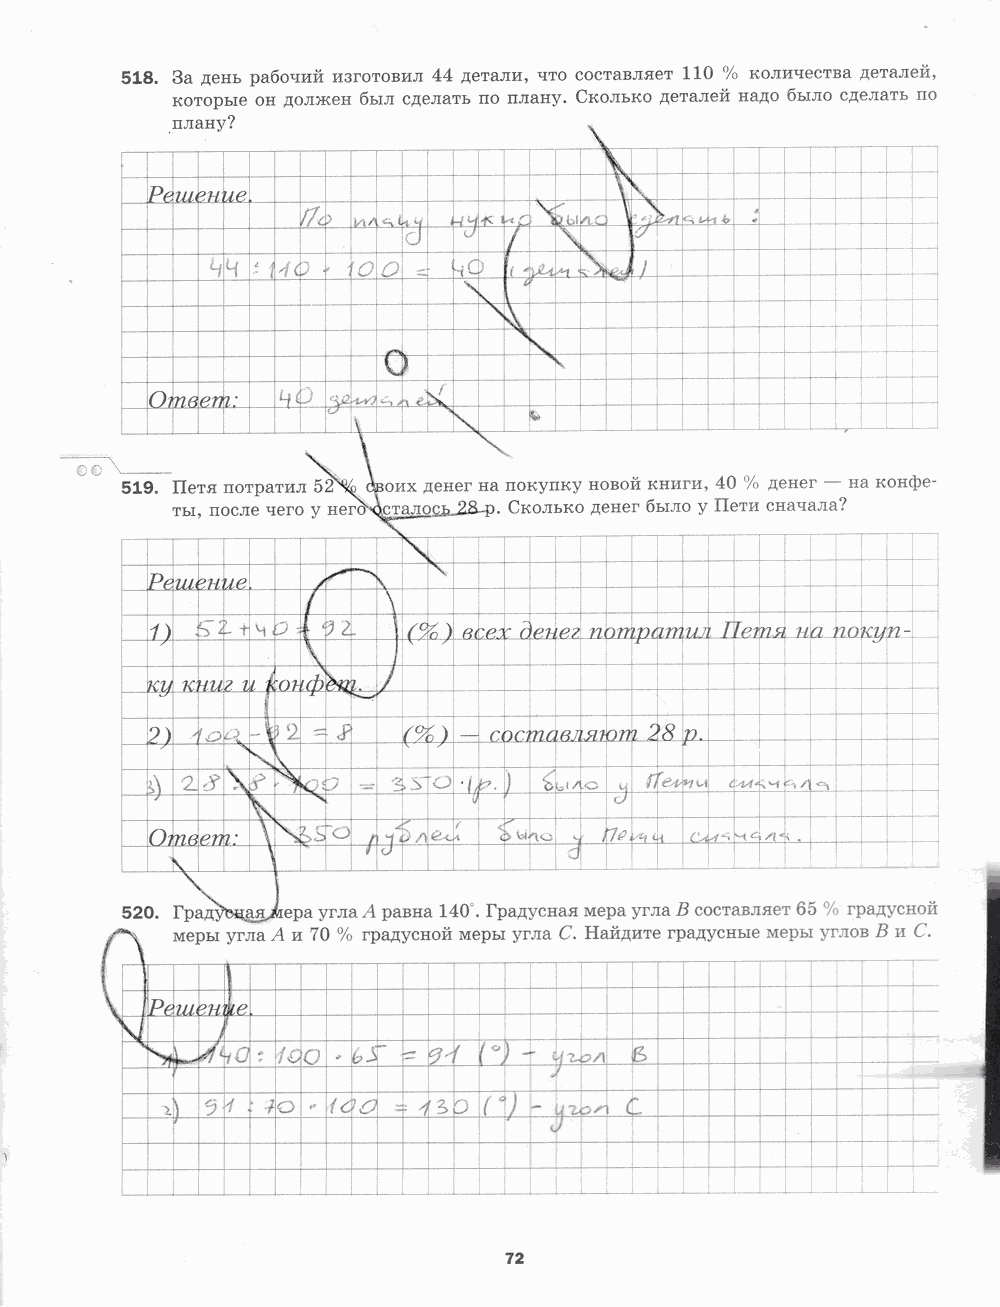 518. За день рабочий изготовил 44 детали, что составляет 110 % количества деталей,
которые он должен был сделать по плану. Сколько деталей надо было сделать по
плану?
Решение.
По плану нужно было сделать :
44 : 110 · 100 = 40 (деталей)
Ответ: 40 деталей
519. Петя потратил 52 % своих денег на покупку новой книги, 40 % денег — на конфе-
ты, после чего у него осталось 28 р. Сколько денег было у Пети сначала?
Решение.
1) 52+40 = 92 (%) всех денег потратил Петя на покуп-
ку книг и конфет.
2) 100 - 92 = 8 (%) — составляют 28 р.
3) 28 : 8 · 100 = 350 (р.) было у Пети сначала
Ответ: 350 рублей было у Пети сначала.
520. Градусная мера угла A равна 140°. Градусная мера угла B составляет 65 % градусной
меры угла A и 70 % градусной меры угла C. Найдите градусные меры углов B и C.
Решение.
1) 140 : 100 · 65 = 91 (°) - угол B
2) 91 : 70 · 100 = 130 (°) - угол C
72